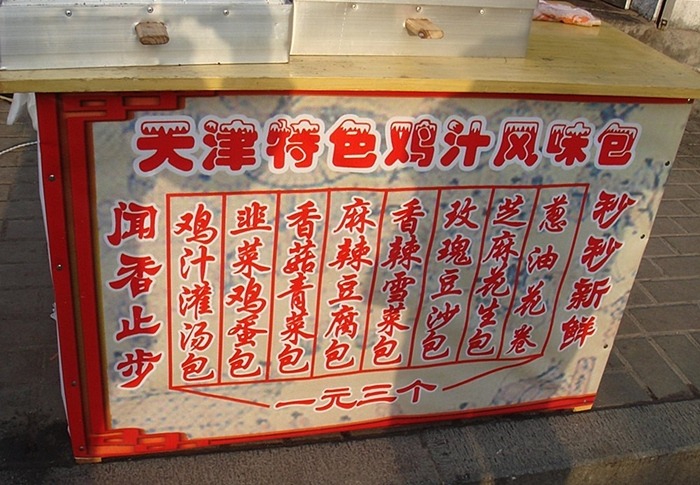 天津特色鸡汁风味包
闻香止步
鸡汁灌汤包
韭菜鸡蛋包
香菇青菜包
麻辣豆腐包
香辣雪菜包
玫瑰豆沙包
芝麻花生包
葱油花卷
秒秒新鲜
一元三个